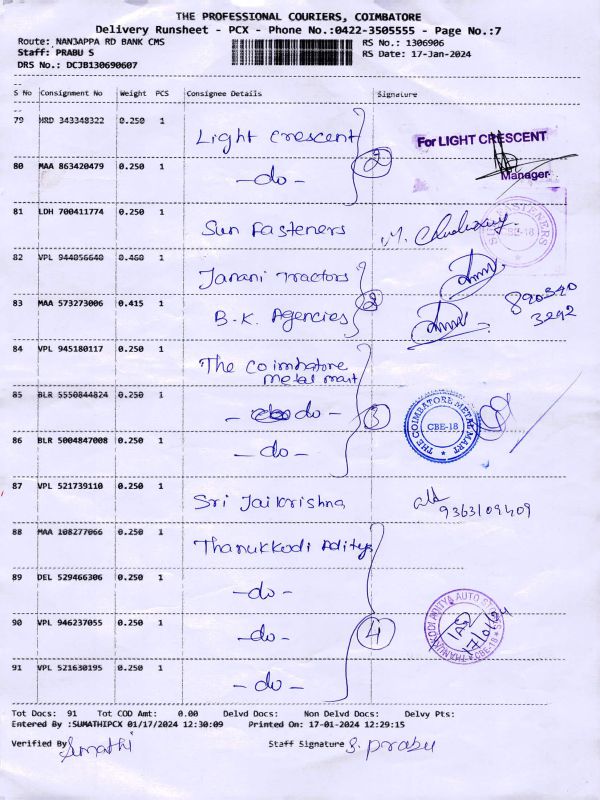 THE PROFESSIONAL COURIERS, COIMBATORE
Delivery Runsheet - PCX - Phone No.:0422-3505555 - Page No.:7
Route: NANJAPPA RD BANK CMS RS No.: 1306906
Staff: PRABU S RS Date: 17-Jan-2024
DRS No.: DCJB130690607
S No Consignment No Weight PCS Consignee Details Signature
79 HRD 343348322 0.250 1 Light Crescent For LIGHT CRESCENT
80 MAA 863420479 0.250 1 -do- 2 Manager
81 LDH 700411774 0.250 1 Sun Fasteners FASTENERS CBE-18
82 VPL 944056640 0.460 1 Janani Tractors
83 MAA 573273006 0.415 1 B.K. Agencies 2 890340
3292
84 VPL 945180117 0.250 1 The Coimbatore
metal mart
85 BLR 5550844824 0.250 1 - do - 3 THE COIMBATORE METAL MART CBE-18
86 BLR 5004847008 0.250 1 -do-
87 VPL 521739110 0.250 1 Sri Jaikrishna
9363109409
88 MAA 108277066 0.250 1 Thanukkodi Aditya
89 DEL 529466306 0.250 1 -do-
90 VPL 946237055 0.250 1 -do- 4 AUTO CBE-18 17/01/24
91 VPL 521630195 0.250 1 -do-
Tot Docs: 91 Tot COD Amt: 0.00 Delvd Docs: Non Delvd Docs: Delvy Pts:
Entered By :SUMATHIPCX 01/17/2024 12:30:09 Printed On: 17-01-2024 12:29:15
Verified By Sumathi Staff Signature S. prabu